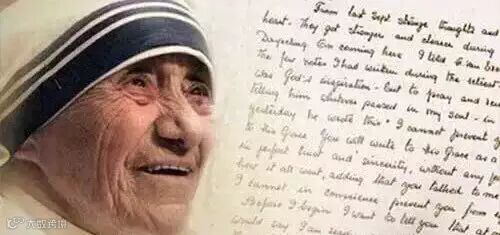 From last Sept. strange thoughts and
heart. They got stronger and clearer during
Darjeeling. On coming here I told
the few notes I had written during the retreat
was God's inspiration - but to pray and
telling him whatever passed in my soul - in
yesterday he wrote this "I cannot prevent y
to His Grace. You will write to His Grace as a
in perfect trust and sincerity, without any
how it all went, adding that you talked to m
I cannot in conscience prevent you from
Before I begin I want to tell you that at
would say I am
大数跨境